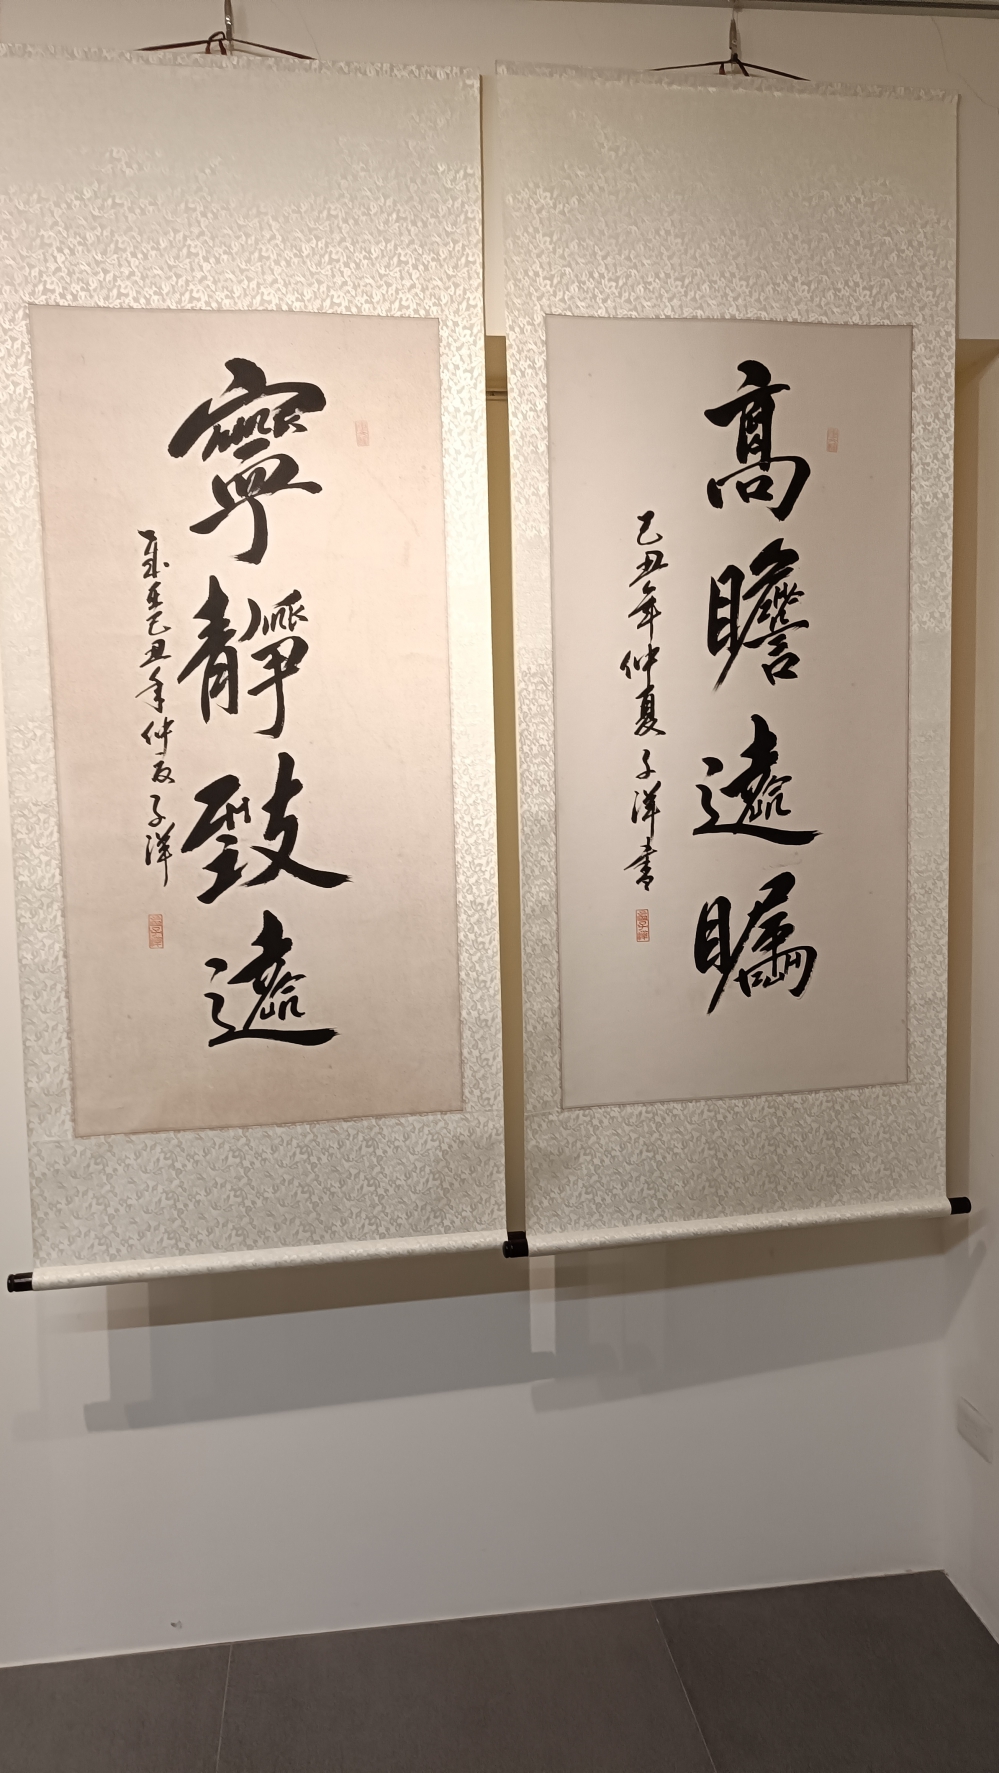 高瞻遠矚
己丑年仲夏子洋書
寧靜致遠
歲在己丑年仲夏子洋